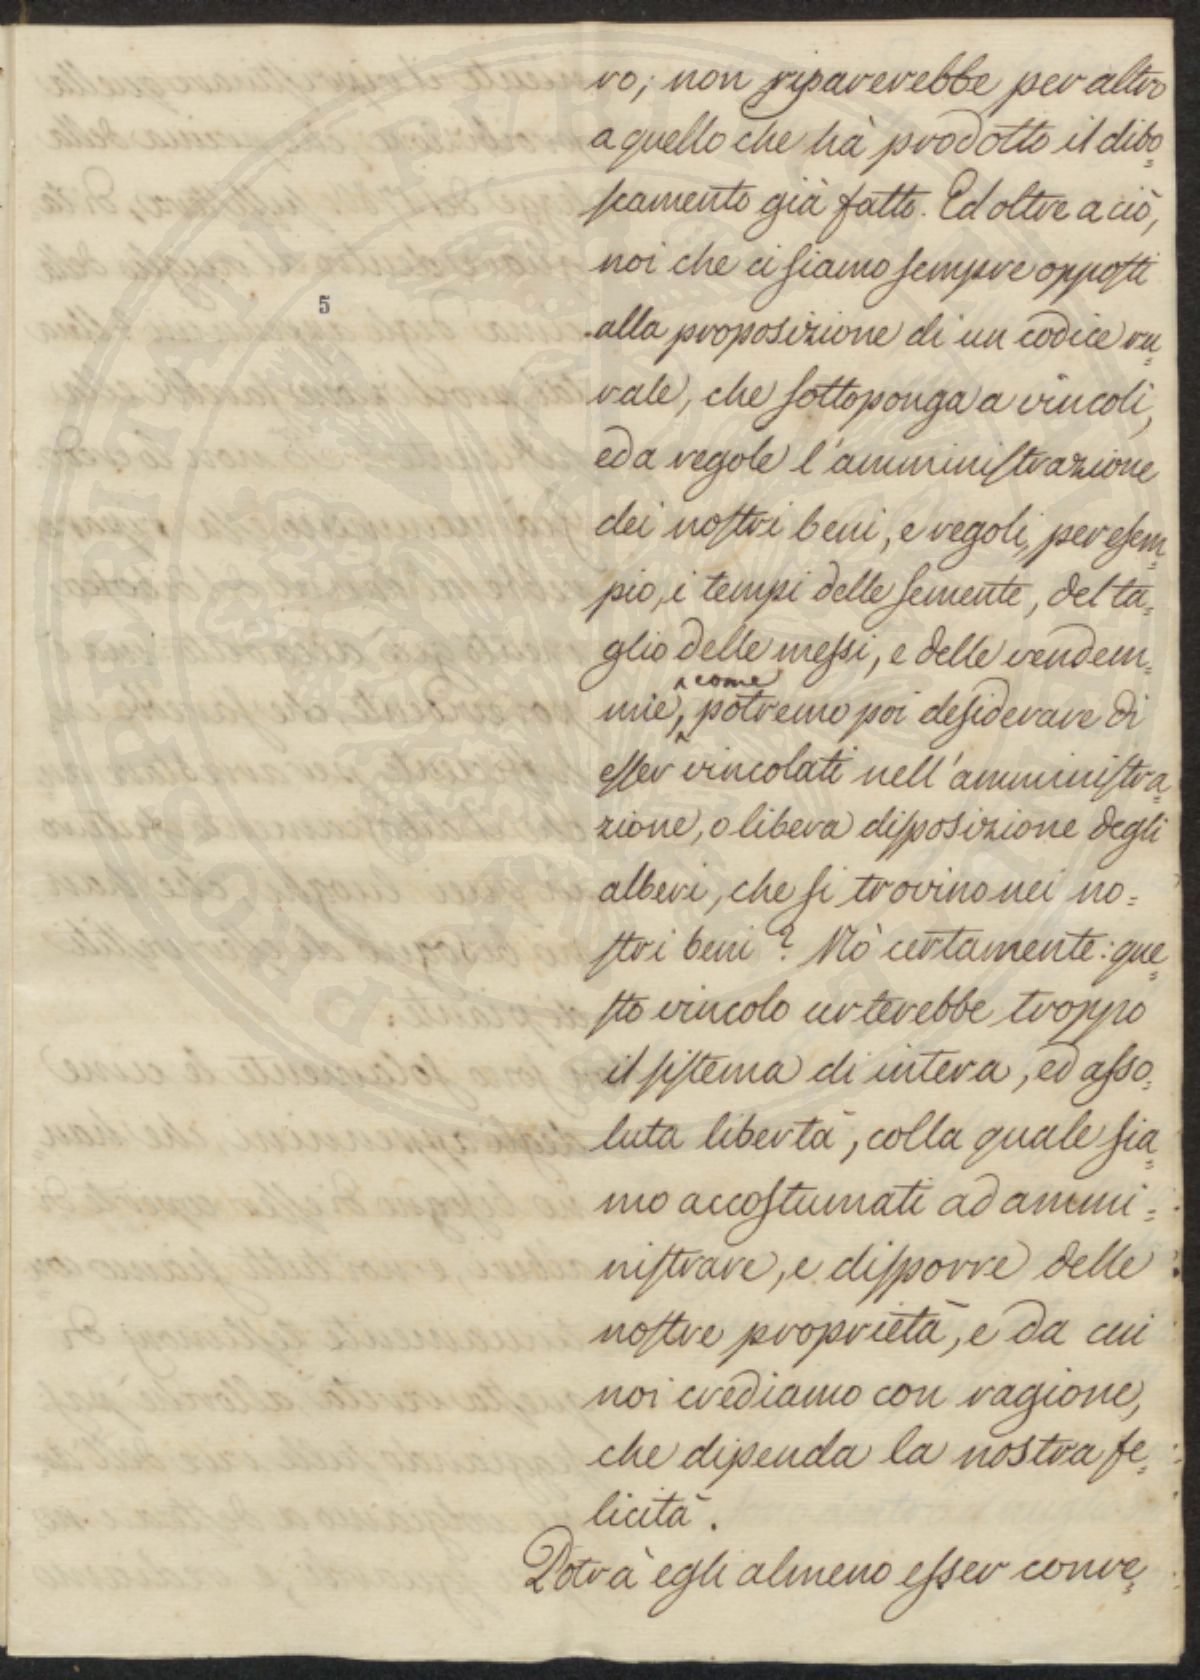 ro; non riparerebbe per altro
a quello che hà prodotto il dibo=
scamento già fatto. Ed oltre a ciò,
noi che ci siamo sempre opposti
5
alla proposizione di un codice ru=
rale, che sottoponga a vincoli,
ed a regole l'amministrazione
dei nostri beni, e regoli, per esem=
pio, i tempi delle semente, del ta=
glio delle messi, e delle vendem=
come
mie, potremo poi desiderare di
esser vincolati nell'amministra=
zione, o libera disposizione degli
alberi, che si trovino nei no=
stri beni? Nò certamente: que=
sto vincolo urterebbe troppo
il sistema di intera, ed asso=
luta libertà, colla quale sia=
mo accostumati ad ammi=
nistrare, e disporre delle
nostre proprietà, e da cui
noi crediamo con ragione,
che dipenda la nostra fe=
licità.
Potrà egli almeno esser conve=
PROSPERITATI PUBLICAE